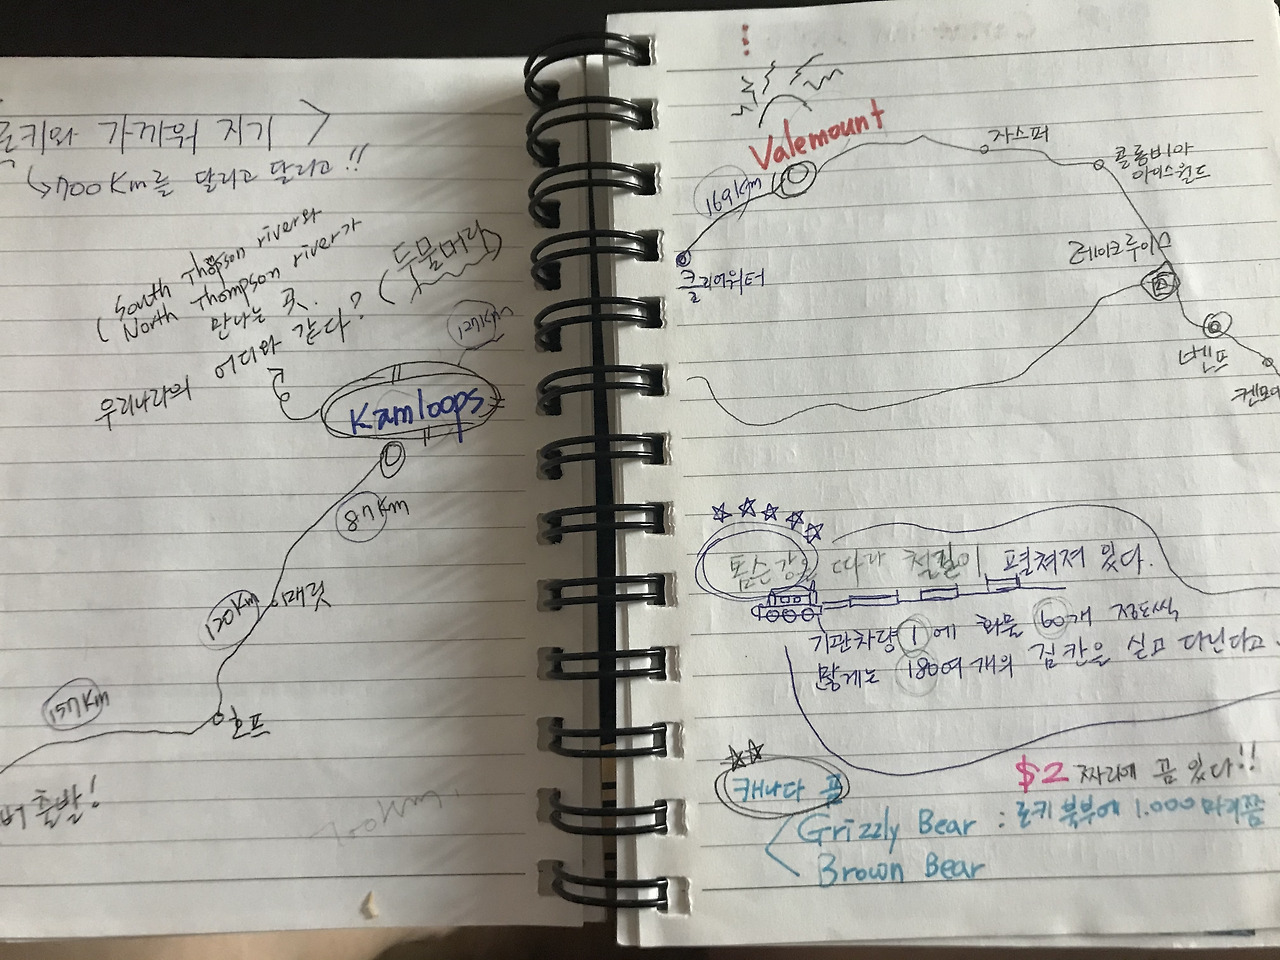 로키와 가까워 지기 >
↳ 700Km를 달리고 달리고!!
( South Thopson river와
North Thompson river가
만나는 곳.
우리나라의 어디와 같다? (두물머리)
127Km
Kamloops
87Km
메릿
120Km
호프
157Km
출발!
!
Valemount
169Km
클리어워터
자스퍼
콜롬비아
아이스월드
레이크루이스
벤프
켄모어
톰슨강을 따라 철길이 펼쳐져 있다.
기관차량 1에 화물 60개 정도씩
많게는 180여개의 짐칸을 싣고 다닌다고.
캐나다 곰
$2 짜리에 곰 있다!!
Grizzly Bear : 로키 북부에 1.000마리쯤
Brown Bear